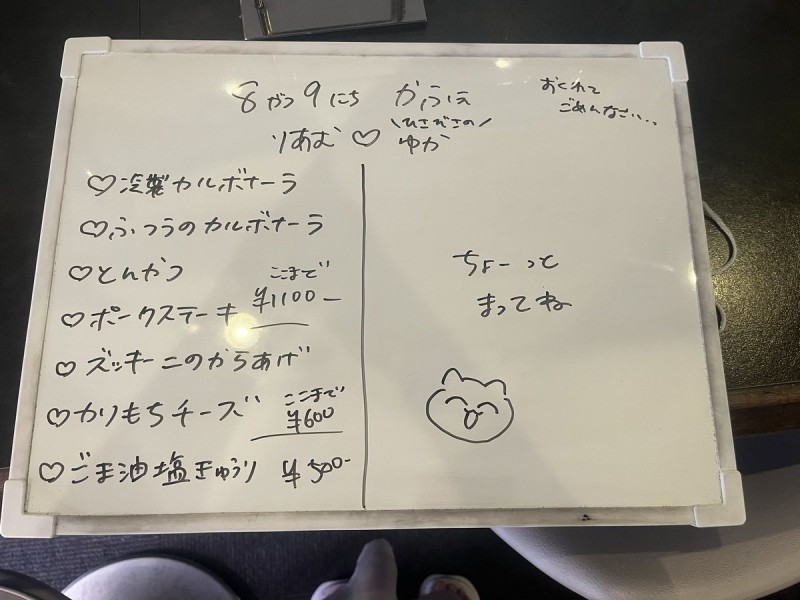 8がつ9にち かふぇ
おくれて
ごめんなさい...
りあむ♡ \ひさびさの/
ゆか
♡冷製カルボナーラ
♡ふつうのカルボナーラ
♡とんかつ
♡ポークステーキ
ここまで
¥1100-
♡ズッキーニのからあげ
♡かりもちチーズ
ここまで
¥600
♡ごま油塩きゅうり ¥500-
ちょーっと
まっててね